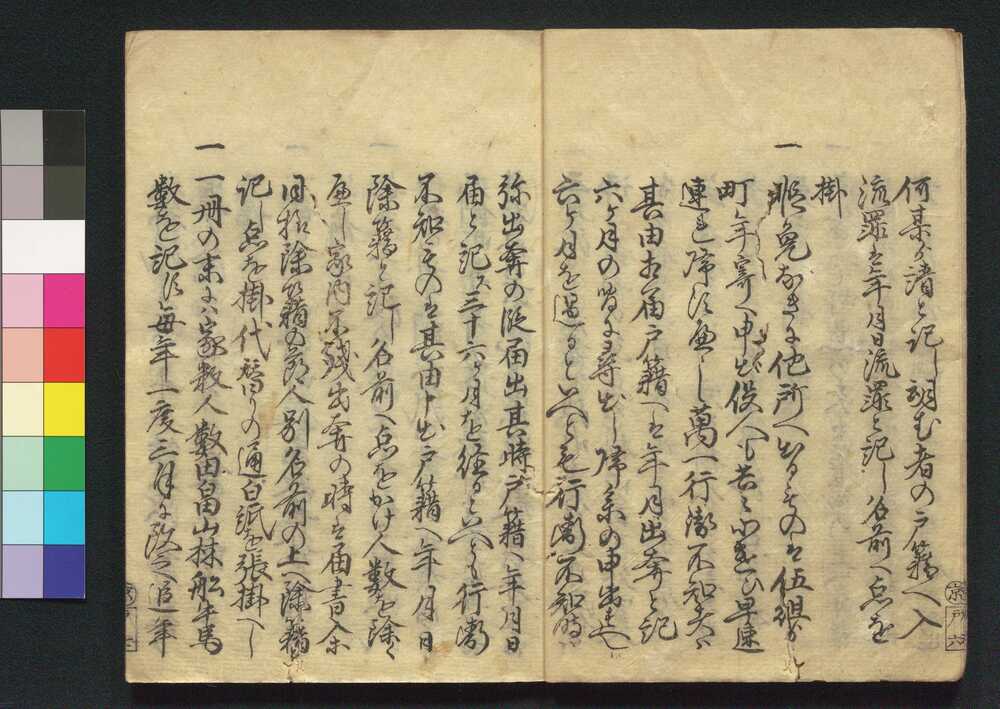 何某ゟ請と記し頼む者の戸籍へ入
流罪は年月日流罪と記し名前へ点を
掛
一 暇免なきに他所へ出るものは伍組ゟ
町年寄へ申出役人も共に追ひ早速
連れ帰す可し萬一行衛不知者は
其由相届戸籍へは年月出奔と記
六ヶ月の間に尋出し帰系の申出す
六ヶ月を過るといへとも行衛不知時
弥出奔の段届出其時戸籍へ年月日
届と記ス三十六ヶ月を経るといへとも行衛
不知ものは其由申出戸籍へ年月日
除籍と記し名前へ点をかけ人数を除く
可し家内不残出奔の時は届書式
同抔除籍の節人別名前の上へ除籍と
記し点を掛代替りの通白紙を張掛へし
一 一冊の末には家数人数田畠山林船牛馬
数を記す毎年一度三月に改め追年